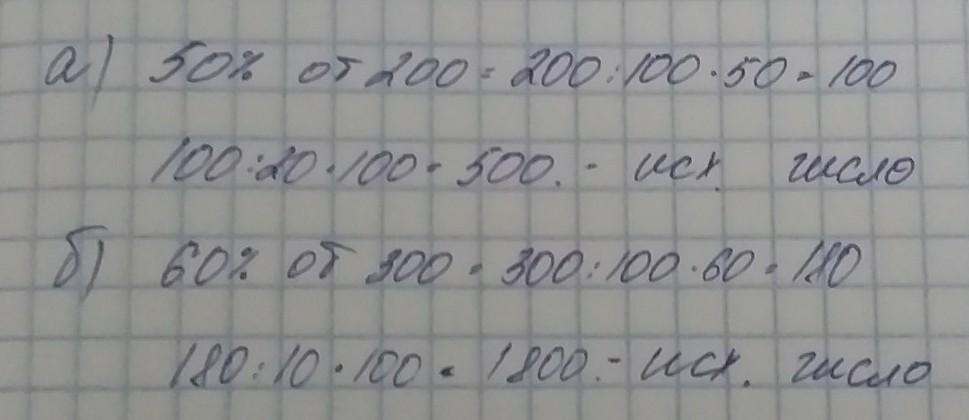 а) 50% от 200 = 200:100·50 = 100
100:20·100 = 500. - исх. число
б) 60% от 300 = 300:100·60 = 180
180:10·100 = 1800. - исх. число